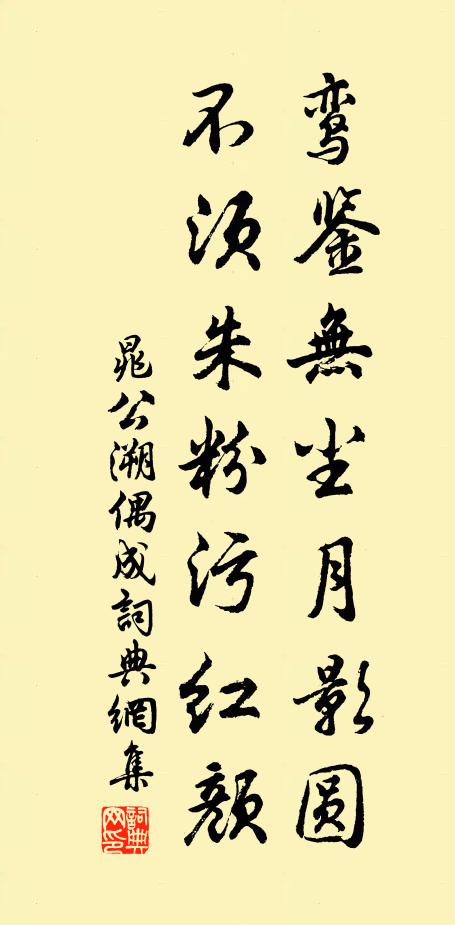 鸾鉴無尘月影圆
不须朱粉污红颜
晁公溯偶成詞典網集
詞典網印